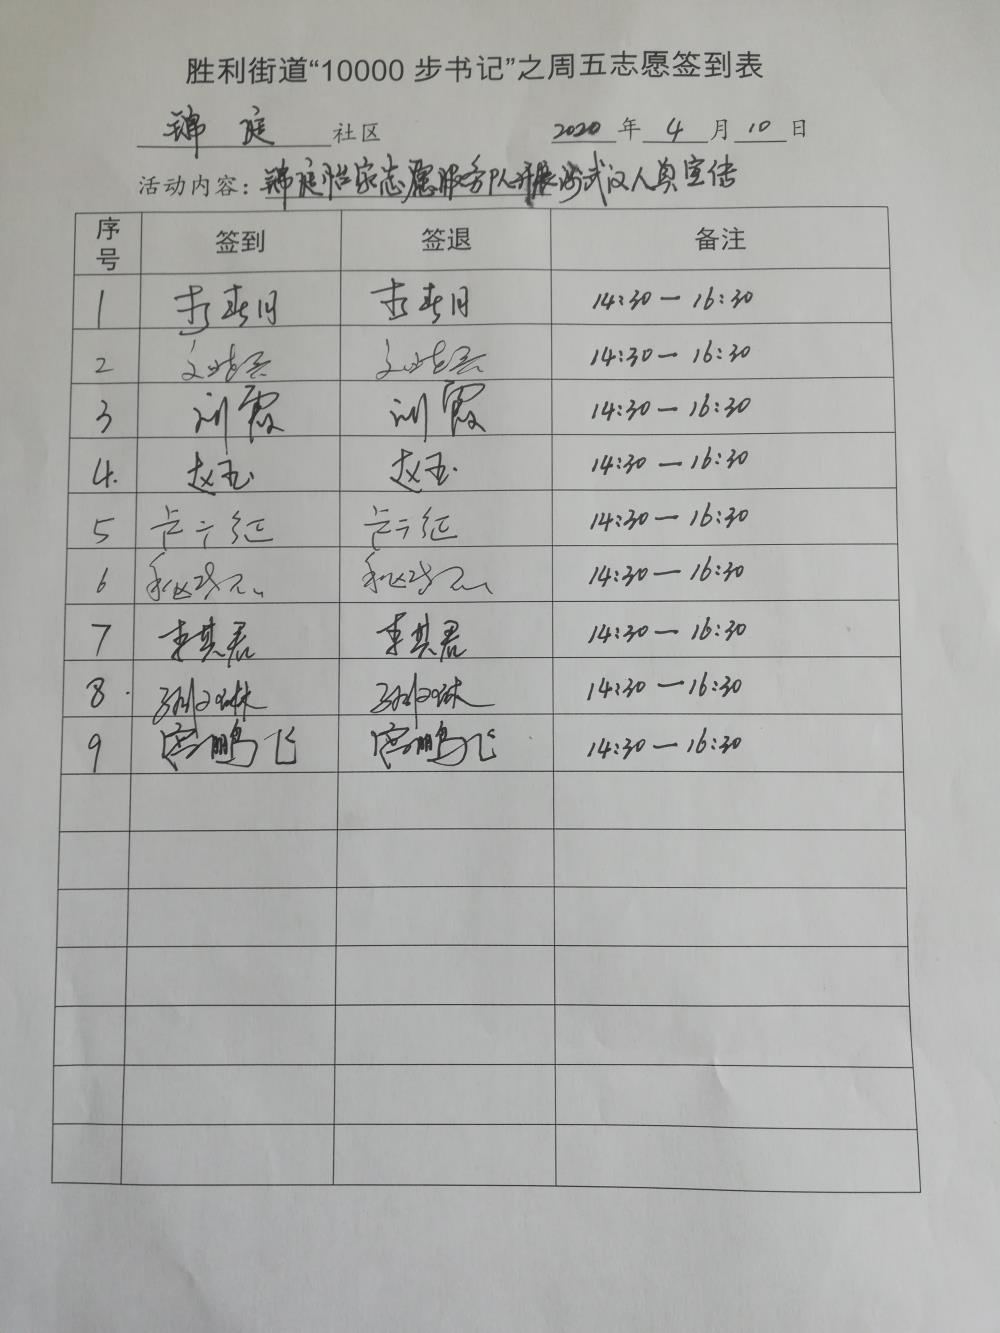 胜利街道“10000 步书记”之周五志愿签到表
锦庭社区 2020年4月10日
活动内容：锦庭怡家志愿服务队开展涉武汉人员宣传
序号 签到 签退 备注
1 李春月 李春月 14:30—16:30
2 14:30—16:30
3 刘霞 刘霞 14:30—16:30
4. 赵玉 赵玉 14:30—16:30
5 14:30—16:30
6 14:30—16:30
7 李其君 李其君 14:30—16:30
8. 14:30—16:30
9 宫鹏飞 宫鹏飞 14:30—16:30